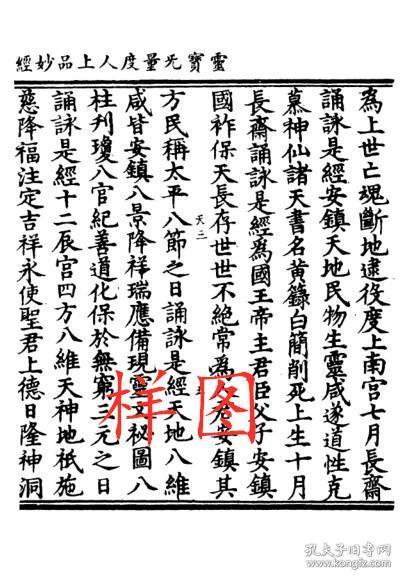 靈寶无量度人上品妙經
為上世亡魂斷地逮役度上南宮七月長齋
誦詠是經安鎮天地民物生靈咸遂道性克
慕神仙諸天書名黃籙白簡削死上生十月
長齋誦詠是經爲國王帝主君臣父子安鎮
國祚保天長存世世不絕常爲君安鎮其
天三
方民稱太平八節之日誦詠是經天地八維
咸皆安鎮八景降祥瑞應備現靈文祕圖八
柱刋瓊八官紀善道化保於無窮元之日
誦詠是經十二辰宮四方八維天神地祇施
慈降福注定吉祥永使聖君上德日隆神洞
样图
孔夫子旧书网